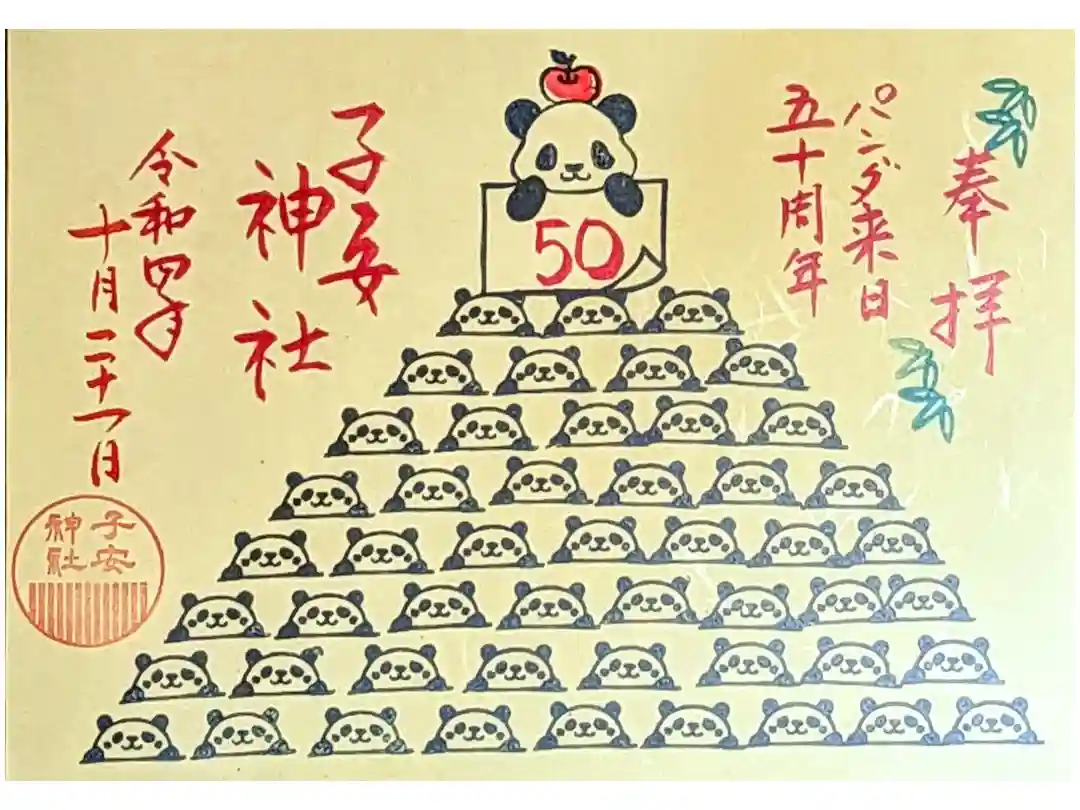 奉拝
パンダ来日
五十周年
50
子安
神社
令和四年
十月二十一日
子安
神社